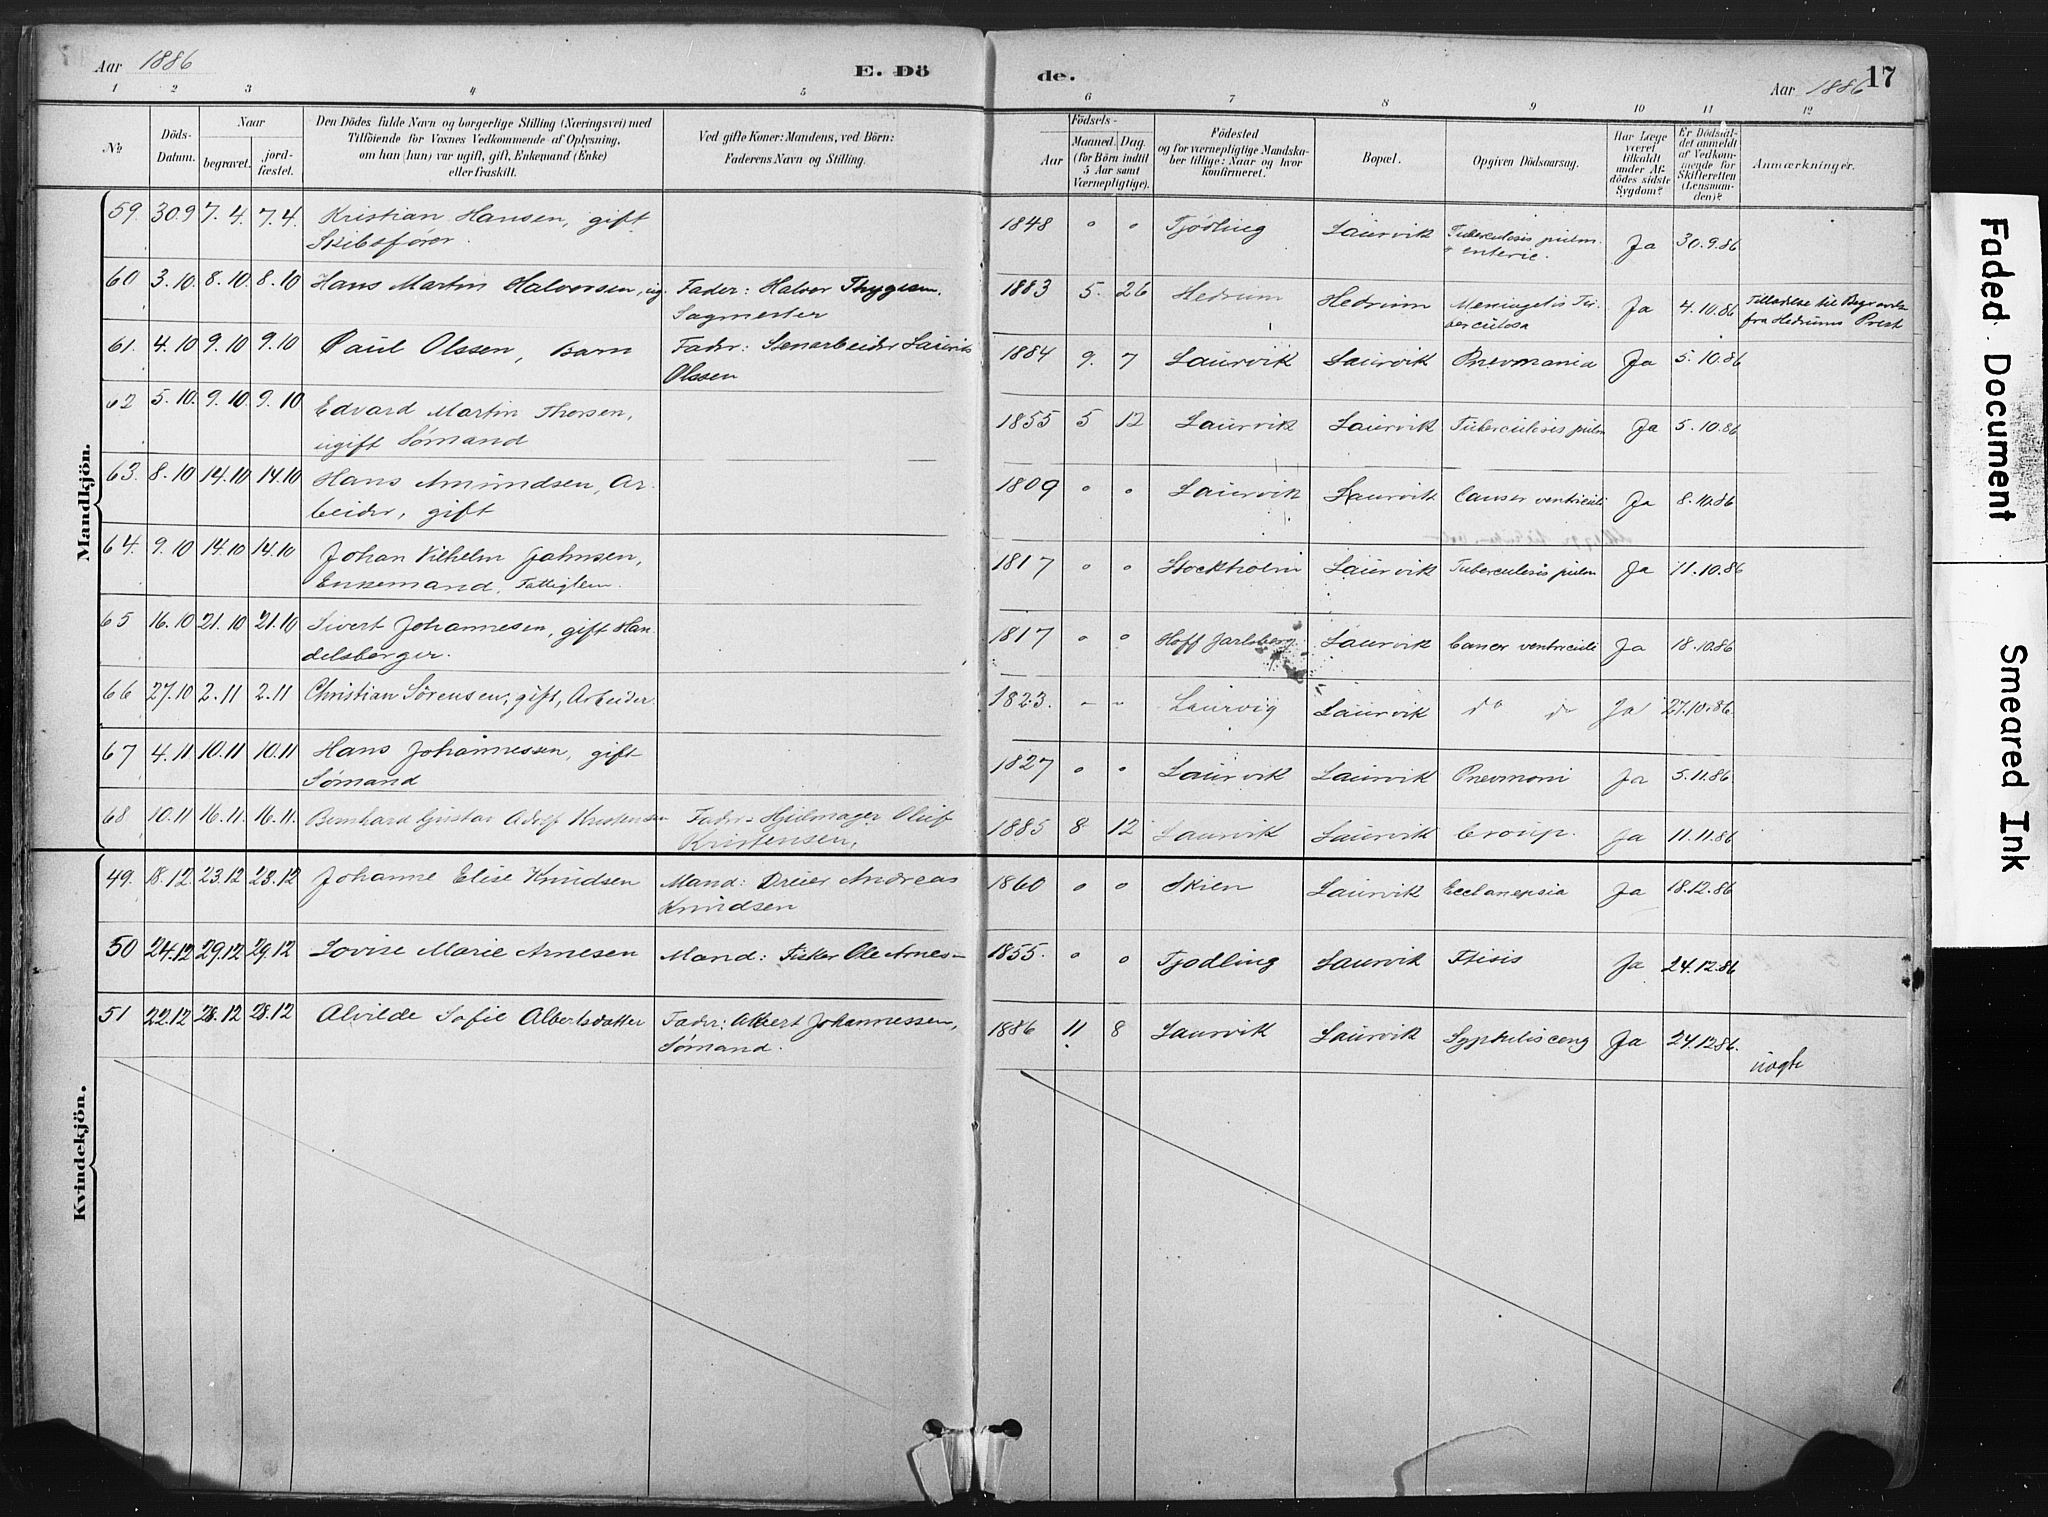 Aar 1886
E. Dö
de.
Aar 1886
17
1 2 3 4 5
6 7 8 9 10 11 12
No
Döds-
Datum.
Naar
begravet.
jord-
fæstet.
Den Dödes fulde Navn og borgerlige Stilling (Næringsvei) med
Tilföiende for Voxnes Vedkommende af Oplysning,
om han (hun) var ugift, gift, Enkemand (Enke)
eller fraskilt.
Ved gifte Koner: Mandens, ved Börn:
Faderens Navn og Stilling.
Födsels-
Aar
Maaned.
Dag.
(for Börn indtil
5 Aar samt
Værnepligtige).
Födested
og for værnepligtige Mandska-
ber tillige: Naar og hvor
konfirmeret.
Bopæl.
Opgiven Dödsaarsag.
Har Læge
været
tilkaldt
under Af-
dödes sidste
Sygdom?
Er Dödsfal-
det anmeldt
af Vedkom-
mende for
Skifteretten
(Lensman-
den)?
Anmærkninger.
Mandkjön.
59. 30.9 7.4. 7.4. Kristian Hansen, gift
Skibsfører.
1848 " " Tjödling Laurvik Tuberculosis pulm.
enteric. Ja 30.9.86
60 3.10. 8.10 8.10 Hans Martin Halvorsen, ug. Fader: Halvor Thygesen.
Sagmester
1883 5. 26 Hedrum Hedrum Meningetis Tu-
berculosa Ja 4.10.86 Tilladelse til Begravelse
fra Hedrums Prest
61. 4.10 9.10 9.10 Paul Olssen, Barn Fader: Stenarbeider Laurits
Olssen
1884 9. 7 Laurvik Laurvik Pnevmonia Ja 5.10.86
62 5.10. 9.10 9.10 Edvard Martin Thorsen,
ugift Sømand
1855 5 12 Laurvik Laurvik Tuberculosis pulm Ja 5.10.86
63. 8.10 14.10 14.10 Hans Amundsen, Ar-
beider, gift
1809 " " Laurvik Laurvik Canser ventriculi Ja 8.10.86
64. 9.10 14.10 14.10 Johan Vilhelm Jahnsen,
Enkemand, Fattiglem.
1817 " " Stockholm Laurvik Tuberculosis pulm Ja 11.10.86
65 16.10 21.10 21.10 Sivert Johannesen, gift Han-
delsborger.
1817 " " Hoff Jarlsberg Laurvik Cancer ventriculi Ja 18.10.86
66 27.10 2.11 2.11 Christian Sörensen, gift, Arbeider.
1823. " " Laurvig Laurvik do do Ja 27.10.86.
67 4.11 10.11 10.11 Hans Johannessen, gift
Sømand
1827 " " Laurvik Laurvik Pnevmoni Ja 5.11.86
68 10.11 16.11. 16.11. Bernhard Gustav Adolf Kristensen Fader: Hjulmager Oluf
Kristensen,
1885 8 12 Laurvik Laurvik Croup. Ja 11.11.86
Kvindekjön.
49. 18.12 23.12 23.12 Johanne Elise Knudsen Mand: Dreier Andreas
Knudsen
1860 " " Skien Laurvik Ecclampsia Ja 18.12.86
50 24.12 29.12 29.12 Lovise Marie Arnesen Mand: Fisker Ole Arnes-
1855. " " Tjodling Laurvik Ftisis Ja 24.12.86
51 22.12 28.12 28.12 Alvilde Sofie Albertsdatter Fader: Albert Johannessen,
Sømand.
1886 11 8 Laurvik Laurvik Syphilis cong Ja 24.12.86. uægte
Faded Document
Smeared Ink